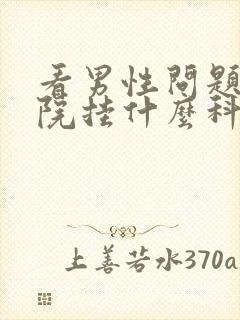 看男性問題
院挂什麽科
上善若水370a